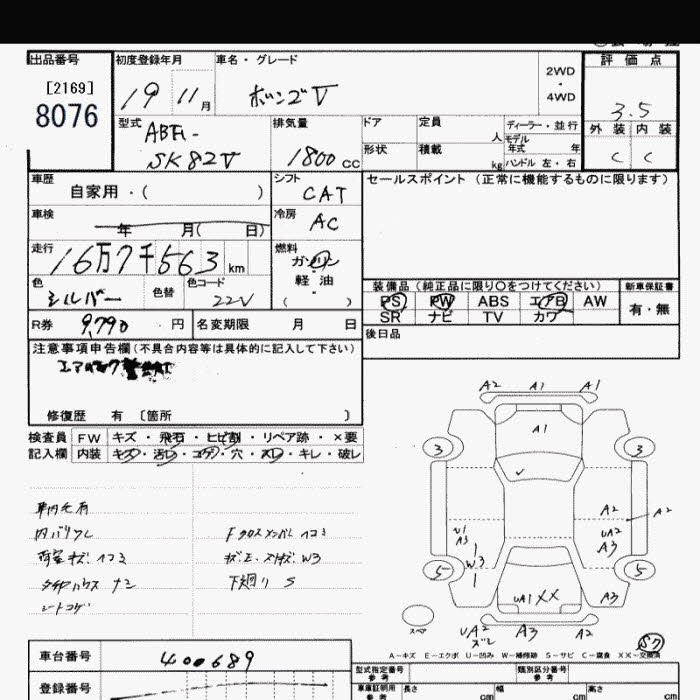 出品番号
[2169]
8076
初度登録年月
19 11月
車名・グレード
ボンゴV
2WD
・
4WD
評価点
3.5
外装 内装
C C
型式
ABF-
SK82V
排気量
1800cc
ドア
定員
人
形状
積載
kg
ディーラー・並行
モデル年式 年
ハンドル 左・右
車歴
自家用・( )
シフト
CAT
セールスポイント (正常に機能するものに限ります)
車検
年 月( 日)
冷房
AC
走行
16万7千563km
燃料
ガソリン
・
軽油
・
( )
色
シルバー
色替
色コード
22V
装備品(純正品に限り○をつけてください)
新車保証書
PS PW ABS エアB AW
SR ナビ TV カワ
有・無
R券
9,790円
名変期限 月 日
後日品
注意事項申告欄(不具合内容等は具体的に記入して下さい)
修復歴 有 〔箇所 〕
検査員 FW キズ・飛石・ヒビ割・リペア跡・×要
記入欄 内装 キズ・汚レ・コゲ・穴・スレ・キレ・破レ
内バリワレ
シートコゲ
下廻り S
A2 A1 A1
A1
3 3
A2 A2
U1
A3
UA2
A3
W3
5 5
UA1 XX
A3
スペア
UA2
ズレ
A3 A2
S7
A-キズ E-エクボ U-凹み W-補修跡 S-サビ C-腐食 XX-交換済
車台番号
400689
登録番号
型式指定番号
参考
類別区分番号
参考
車庫証明用
参考
長さ cm
幅 cm
高さ cm